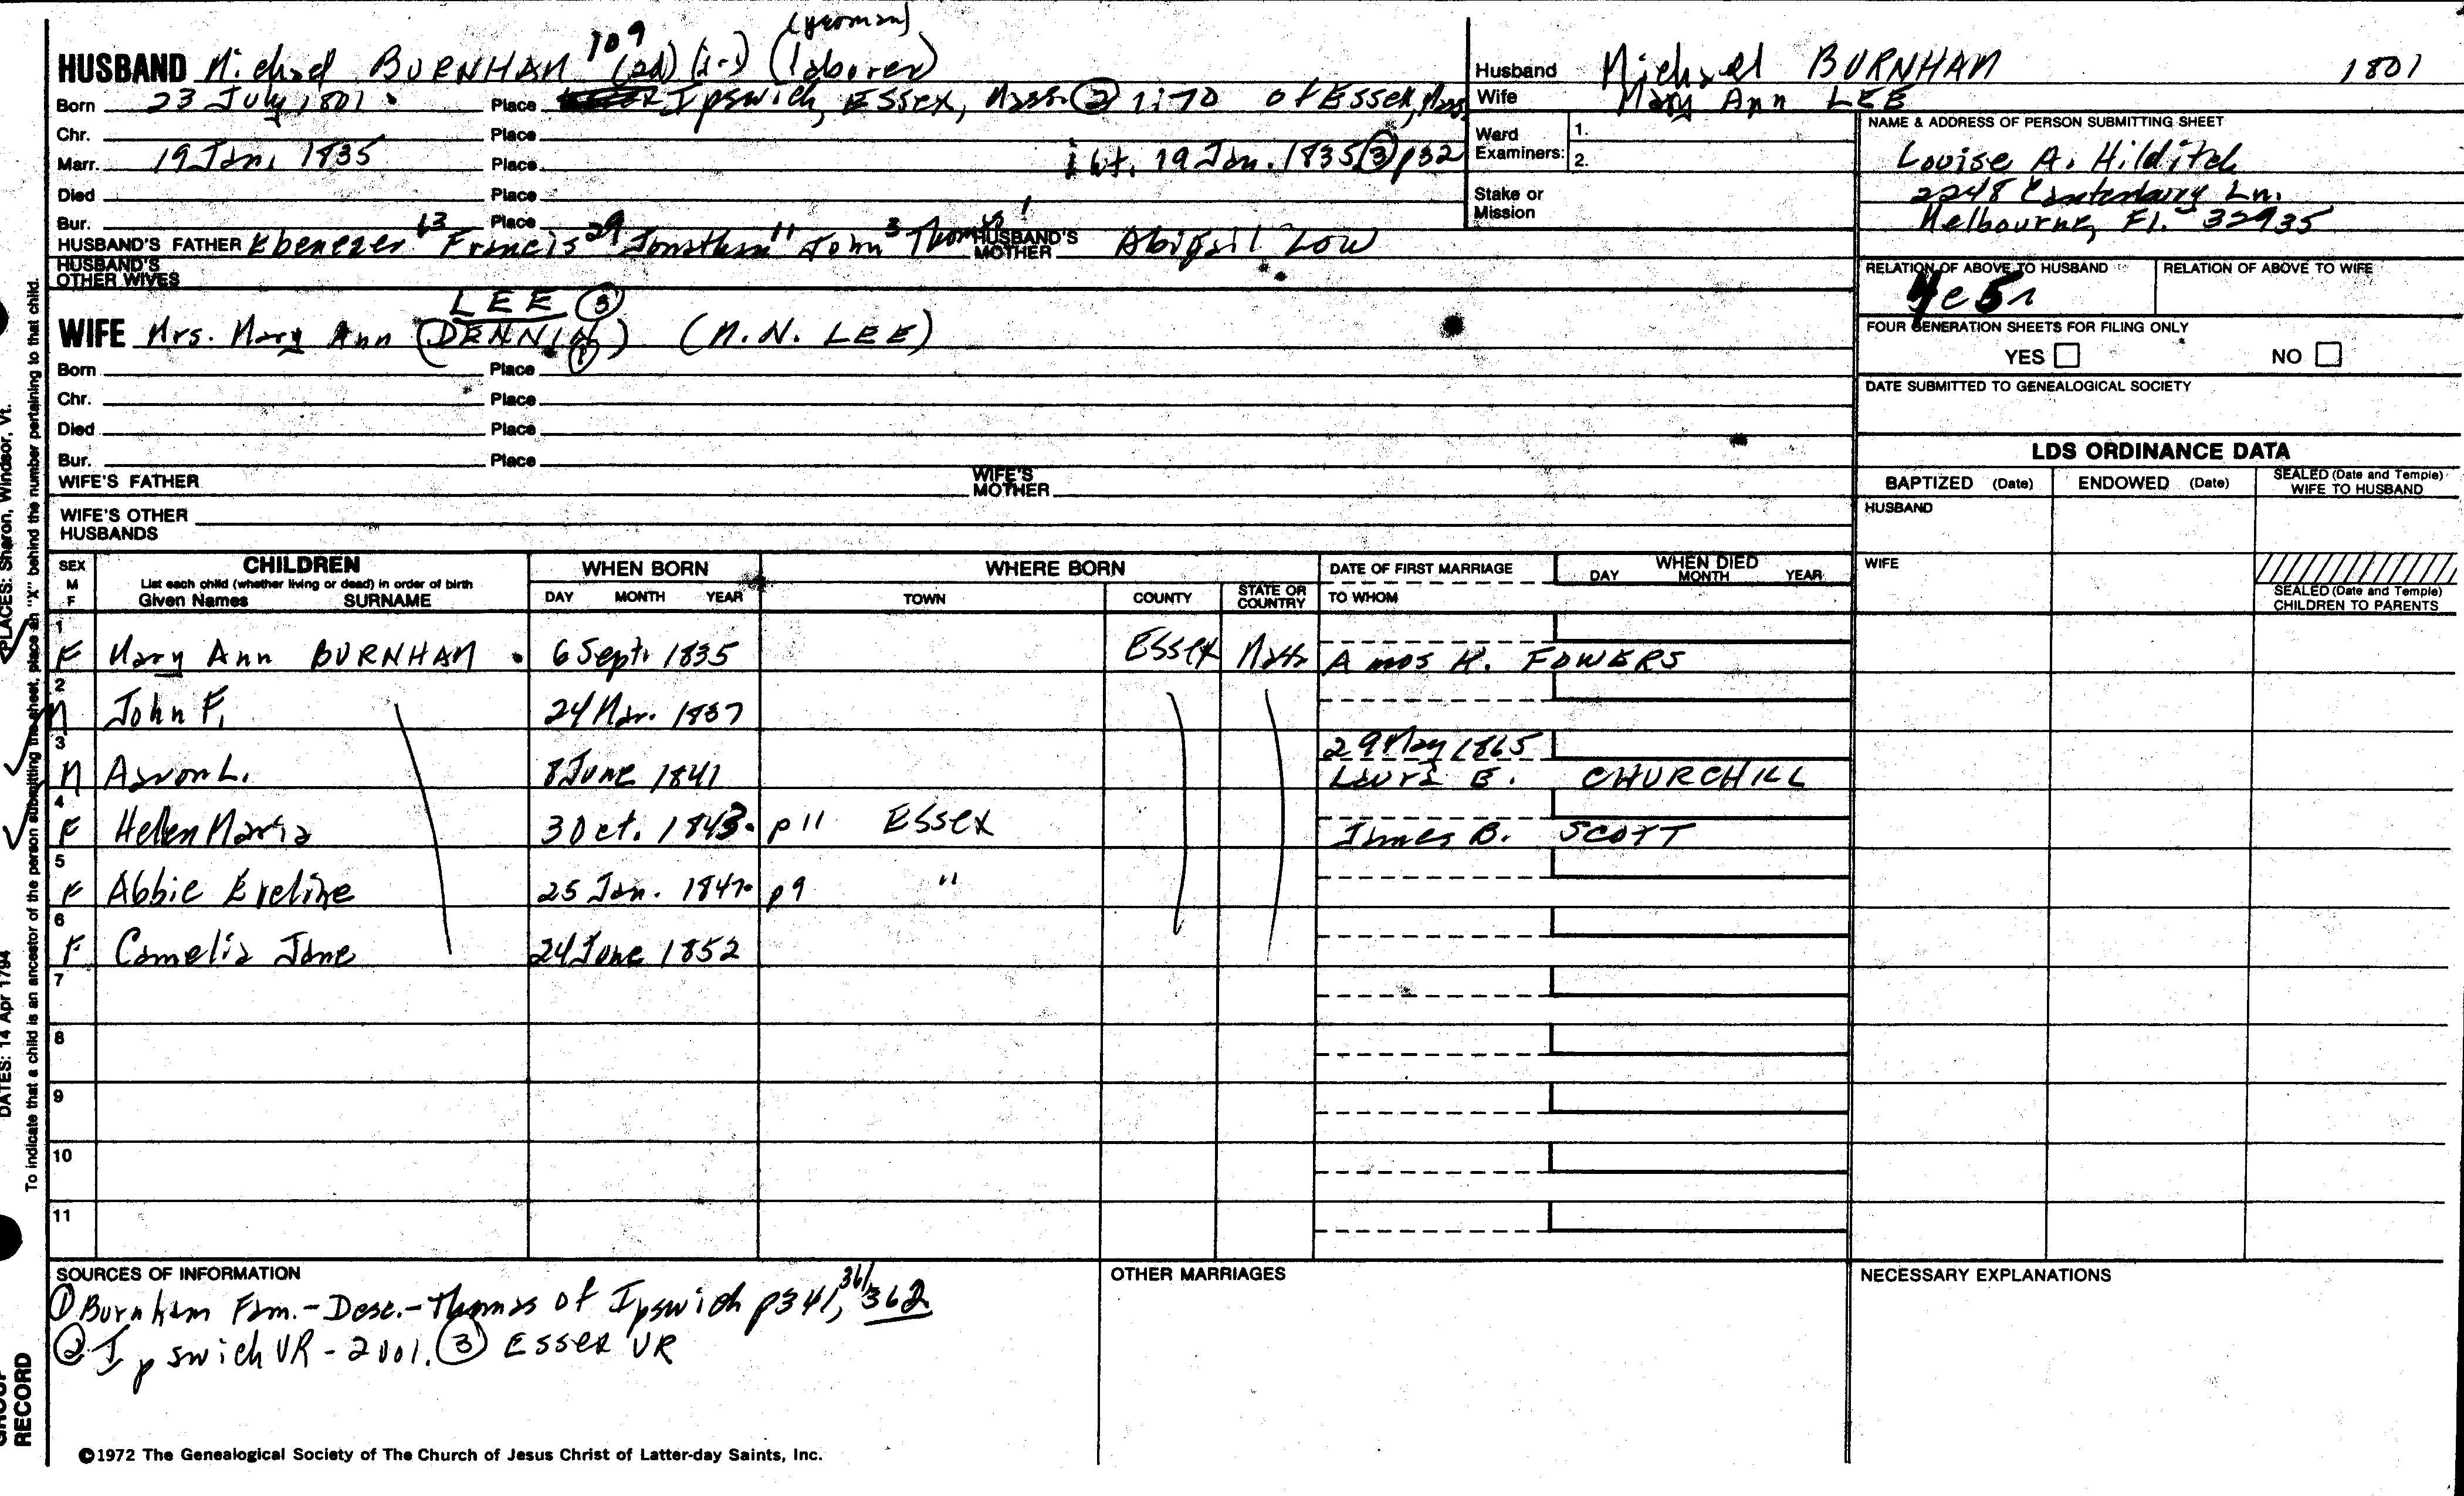 (yeoman)
HUSBAND Michael BURNHAM 109 (2d) (i-s) (laborer)
Born 23 July 1801. Place Ipswich, Essex, Mass. (2) 1:70 of Essex, Mass.
Chr. Place
Marr. 19 Jan. 1835 Place int. 19 Jan. 1835 (3) p32
Died Place
Bur. Place
HUSBAND'S FATHER Ebenezer 63 Francis 29 Jonathan 11 John 3 Thomas 1 HUSBAND'S MOTHER Abigail Low
HUSBAND'S OTHER WIVES
LEE (3)
WIFE Mrs. Mary Ann (DENNIN) (1) (M.N. LEE)
Born Place
Chr. Place
Died Place
Bur. Place
WIFE'S FATHER WIFE'S MOTHER
WIFE'S OTHER HUSBANDS
Husband Michael BURNHAM 1801
Wife Mary Ann LEE
Ward Examiners: 1.
2.
Stake or Mission
NAME & ADDRESS OF PERSON SUBMITTING SHEET
Louise A. Hilditch
2248 Canterbury Ln.
Melbourne, Fl. 32935
RELATION OF ABOVE TO HUSBAND RELATION OF ABOVE TO WIFE
FOUR GENERATION SHEETS FOR FILING ONLY
YES NO
DATE SUBMITTED TO GENEALOGICAL SOCIETY
LDS ORDINANCE DATA
BAPTIZED (Date) ENDOWED (Date) SEALED (Date and Temple) WIFE TO HUSBAND
HUSBAND
WIFE
SEALED (Date and Temple) CHILDREN TO PARENTS
SEX M F CHILDREN List each child (whether living or dead) in order of birth Given Names SURNAME
WHEN BORN DAY MONTH YEAR
WHERE BORN TOWN COUNTY STATE OR COUNTRY
DATE OF FIRST MARRIAGE TO WHOM
WHEN DIED DAY MONTH YEAR
1 F Mary Ann BURNHAM . 6 Sept. 1835 Essex Mass Amos H. FOWERS
2 M John F. 24 Mar. 1837
3 M Aaron L. 8 June 1841 29 May 1865 Laura E. CHURCHILL
4 F Hellen Maria 3 Oct. 1843. p11 Essex James B. SCOTT
5 F Abbie Eveline 25 Jan. 1847. p9 "
6 F Camelia Jane 24 June 1852
7
8
9
10
11
SOURCES OF INFORMATION
(1) Burnham Fam.-Desc.-Thomas of Ipswich p341, 361, 362
(2) Ipswich VR - 2 vol. (3) Essex VR
OTHER MARRIAGES
NECESSARY EXPLANATIONS
©1972 The Genealogical Society of The Church of Jesus Christ of Latter-day Saints, Inc.
PLACES: Sharon, Windsor, Vt.
DATES: 14 Apr 1794
To indicate that a child is an ancestor of the person submitting the sheet, place an "X" behind the number pertaining to that child.
GROUP RECORD